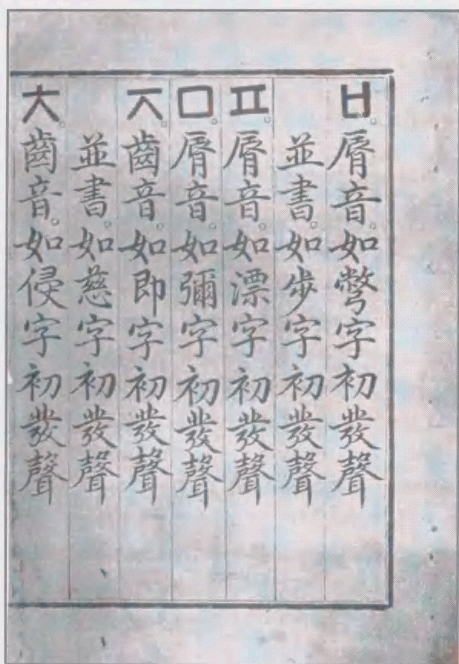 ㅂ。脣音。如彆字初發聲
並書。如步字初發聲
ㅍ。脣音。如漂字初發聲
ㅁ。脣音。如彌字初發聲
ㅈ。齒音。如即字初發聲
並書。如慈字初發聲
ㅊ。齒音。如侵字初發聲